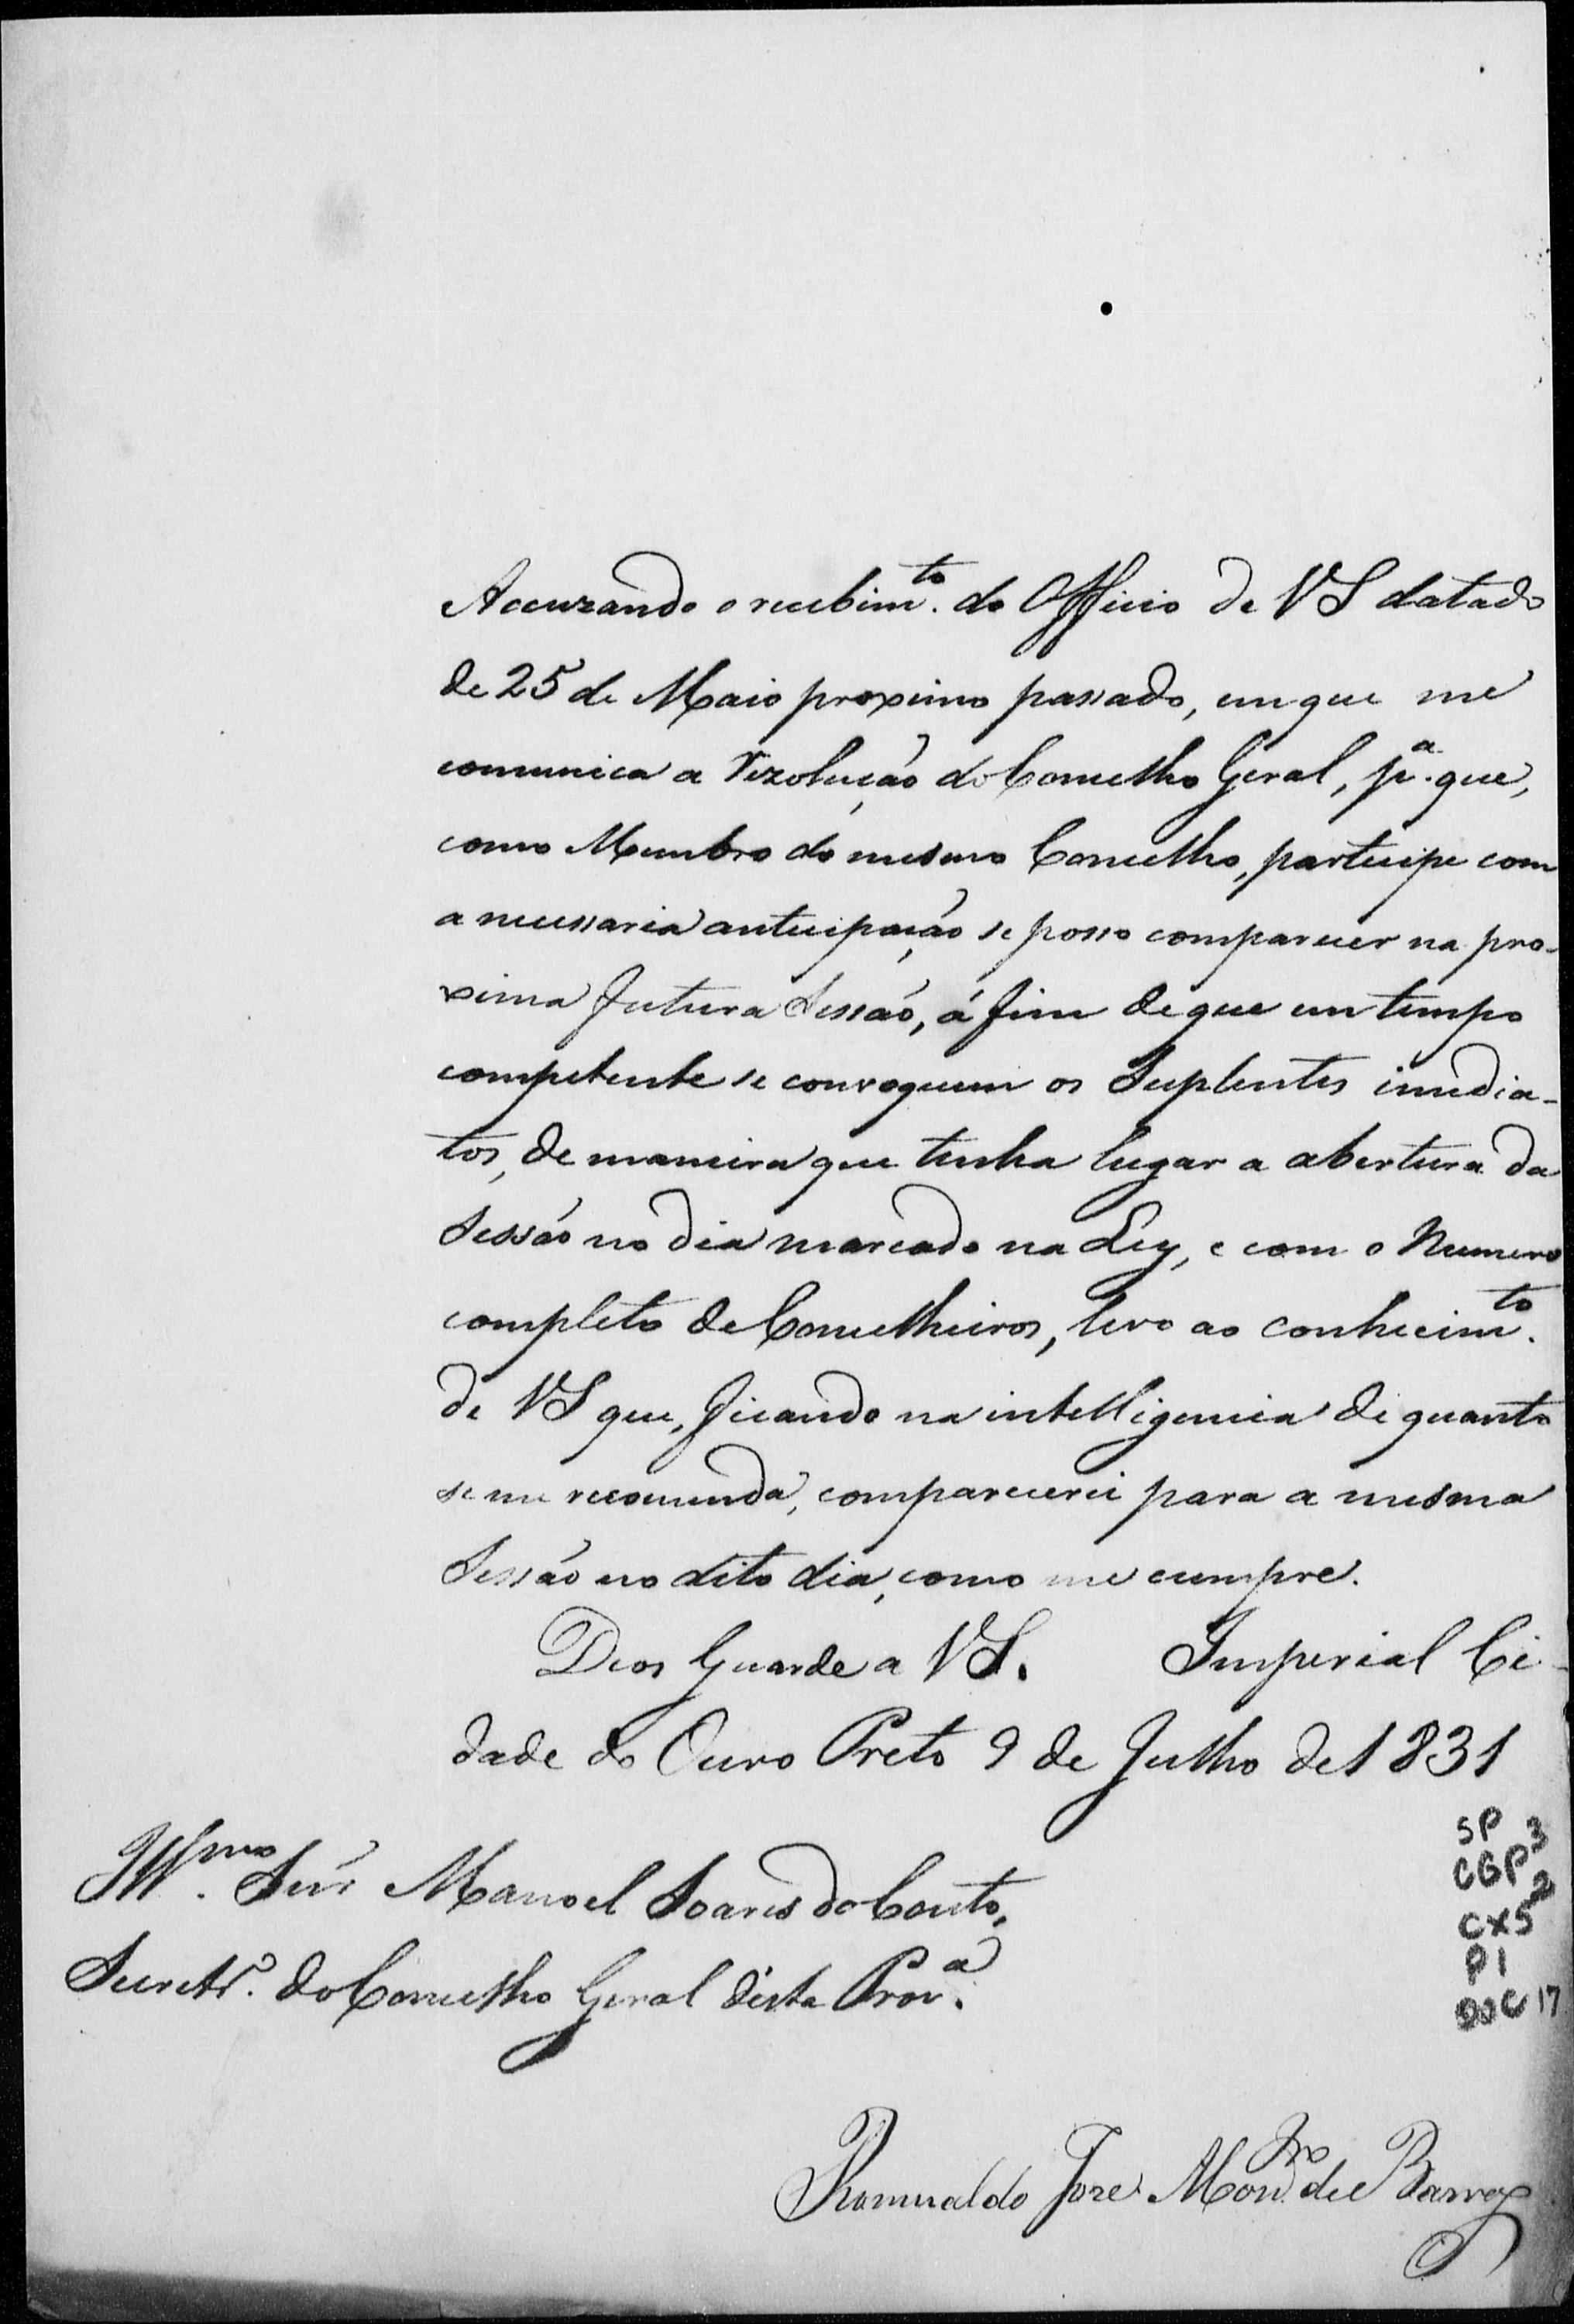 Accuzando o recebim.to do Officio de VS datado
de 25 de Maio proximo passado, em que me
comunica a Rezolução do Concelho Geral, p.a que,
como Membro do mesmo Concelho, participe com
a necessaria anticipação se posso comparecer na pro-
xima futura Sessão, á fim de que em tempo
competente se convoquem os Suplentes imedia-
tos, de maneira que tenha lugar a abertura da
Sessão no dia marcado na Ley, e com o Numero
completo de Concelheiros, levo ao conhecim.to
de VS que, ficando na intelligencia de quanto
se me recomenda, comparecerei para a mesma
Sessão no dito dia, como me cumpre.
Deos Guarde a VS. Imperial Ci-
dade do Ouro Preto 9 de Julho de 1831
Ill.mo Snr. Manoel Soares do Couto,
Secretr.o do Concelho Geral desta Prov.a
SP
CGP 3
CX5 2
P1
DOC 17
Romualdo Joze Mont.ro de Barros